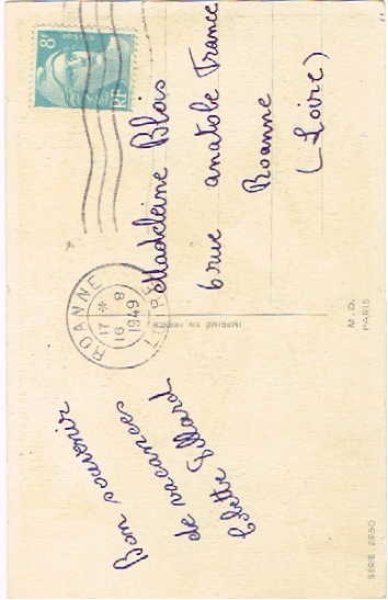 Bon souvenir
de vacances
Colette
8F
RF
ROANNE
17 *
16 8
1949
LOIRE
Madeleine Blois
6 rue anatole France
Roanne
(Loire)
IMPRIMÉ EN FRANCE
M.D.
PARIS
SÉRIE